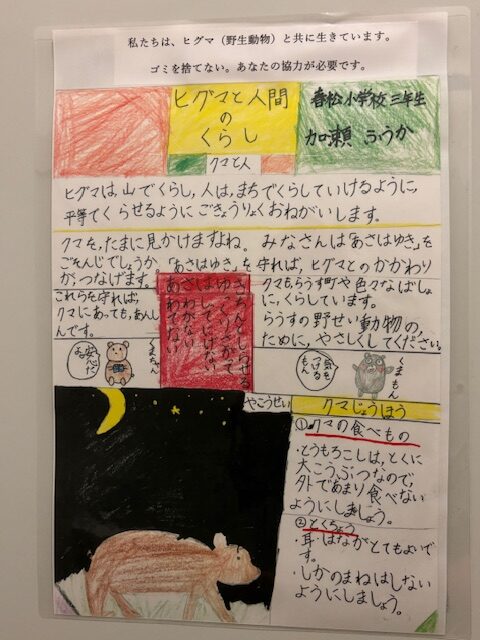 私たちは、ヒグマ（野生動物）と共に生きています。
ゴミを捨てない。あなたの協力が必要です。
ヒグマと人間
の
くらし
春松小学校三年生
加瀬 ふうか
クマと人
ヒグマは、山でくらし、人は、まちでくらしていけるように、
平等でくらせるようにごきょうりょくおねがいします。
クマを、たまに見かけますよね。みなさんは「あさはゆき」を
ごぞんじでしょうか。「あさはゆき」を守れば、ヒグマとのかかわり
が、つなげます。
これらを守れば、
クマにあっても、あんしん
んです。
きちんとしらせる
ゆっくりさがって
はしってにげない
さわがない
あわてない
クマもらうす町や色々なばしょ
に、くらしています。
らうすの野せい動物の、
ために、やさしくしてください。
安心だね
くまちゃん
気をつけるもん
くまもん
やこうせい
クマじょうほう
①クマの食べもの
・とうもろこしは、とくに
大こうぶつなので、
外であまり食べない
ようにしましょう。
②とくちょう
・耳・はながとてもよいで
す。
・しかのまねはしない
ようにしましょう。